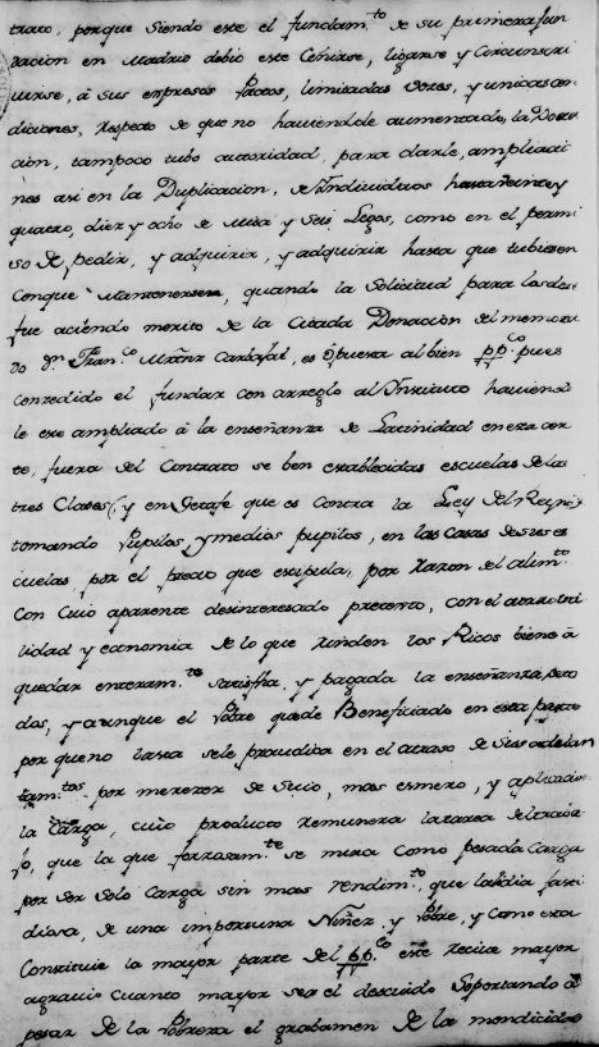 trato, porque siendo este el fundam.to de su primera fun
dacion en Madrid debio este Ceñirse, ligarse y Circunscri
virse, â sus expresos Pactos, limitadas Voces, y unicas con
diciones, respecto de que no haviendole aumentado la Dota
cion, tampoco tubo autoridad, para darle, ampliacio
nes asi en la Duplicacion, de Individuos hasta veinte y
quatro, diez y ocho de Misa y Seis Legos, como en el permi
so de pedir, y adquirir, y adquirir hasta que tubiesen
Conque Mantenerse, quando la Solicitud para las dos
fue aciendo merito de la Citada Donacion del memora
do Dn. Fran.co Mrñz Carbajal, es opuesta al bien pp.co pues
concedido el fundar con arreglo al Instituto haviendo
le ampliado â la enseñanza de Latinidad en esta cor
te, fuera del Contrato se ben establecidas escuelas de las
tres Clases, y en Getafe que es Contra la Ley del Reyno
tomando Pupilos, y medios pupilos, en las Casas de sus es
cuelas por el precio que estipula, por razon del alim.to
Con Cuio aparente desinteresado pretexto, con el
lidad y economia de lo que rinden los Ricos biene â
quedar enteram.te satisfha, y pagada la enseñanza de to
dos, y aunque el Pobre quede Beneficiado en esta parte
por que no basta se le perjudica en el atraso de sus adelan
tam.tos por merecer de suio, mas esmero, y aplicacion
la Carga, cuio producto remunera la tarea del traba
jo, que la que forzosam.te se mira como pesada Carga
por ser solo Carga sin mas rendim.to, que la fasti
diosa, de una importuna Niñez, y Pobre, y como esta
Constituie la mayor parte del pp.co este recive mayor
agravio cuanto mayor sea el descuido Soportando â
pesar de la Pobreza el grabamen de la mendicidad